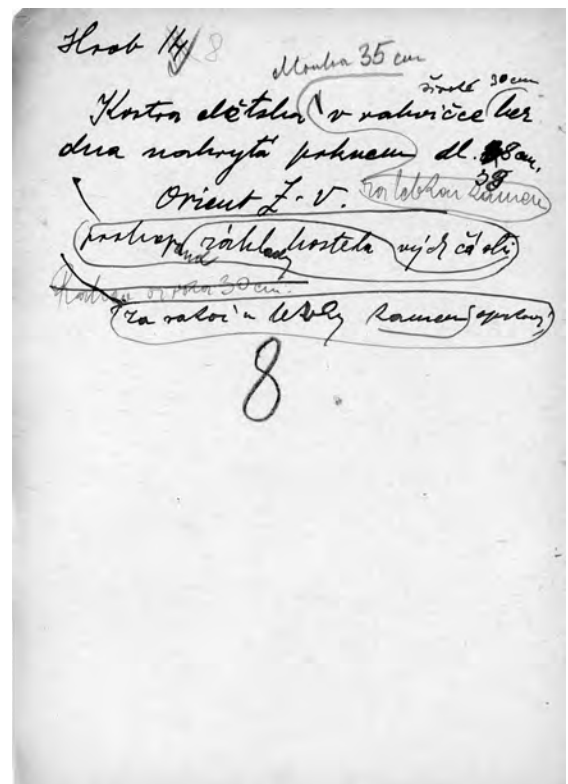 Hrob 14 8
hloubka 35 cm
široké 30 cm
Kostra dětská v rakvičce bez
dna nakrytá prknem dl. 8 cm.
Orient Z-V. za lebkou kamen
prokopaná základy kostela vých části
široká 30 cm.
za rakví u lebky kamen
8